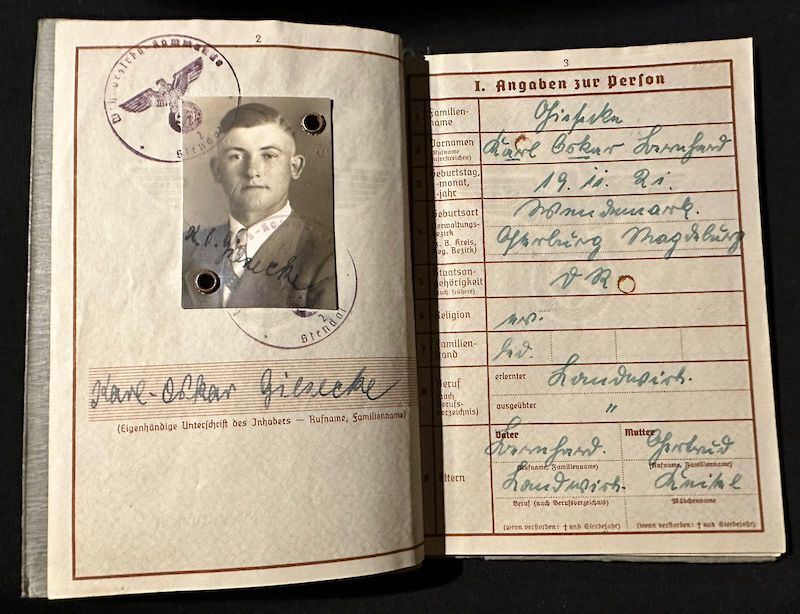 2
Stendal
K. O. Giesecke
2
Stendal
Karl-Oskar Giesecke
(Eigenhändige Unterschrift des Inhabers — Rufname, Familienname)
3
I. Angaben zur Person
1 Familien-
name
Giesecke
2 Vornamen
(Rufname
unterstreichen)
Karl Oskar Bernhard
3 Geburtstag,
-monat,
-jahr
19. 11. 21.
Geburtsort
Verwaltungs-
bezirk
(z. B. Kreis,
Reg. Bezirk)
Wendemark.
Osterburg Magdeburg
5 Staatsan-
gehörigkeit
(auch frühere)
D R
6 Religion
ev.
7 Familien-
stand
led.
8 Beruf
(nach
Berufs-
verzeichnis)
erlernter Landwirt.
ausgeübter "
9 Eltern
Vater
Bernhard.
(Rufname, Familienname)
Landwirt.
Beruf (nach Berufsverzeichnis)
(wenn verstorben: † und Sterbejahr)
Mutter
Gertrud
(Rufname, Familienname)
Mädchenname
(wenn verstorben: † und Sterbejahr)